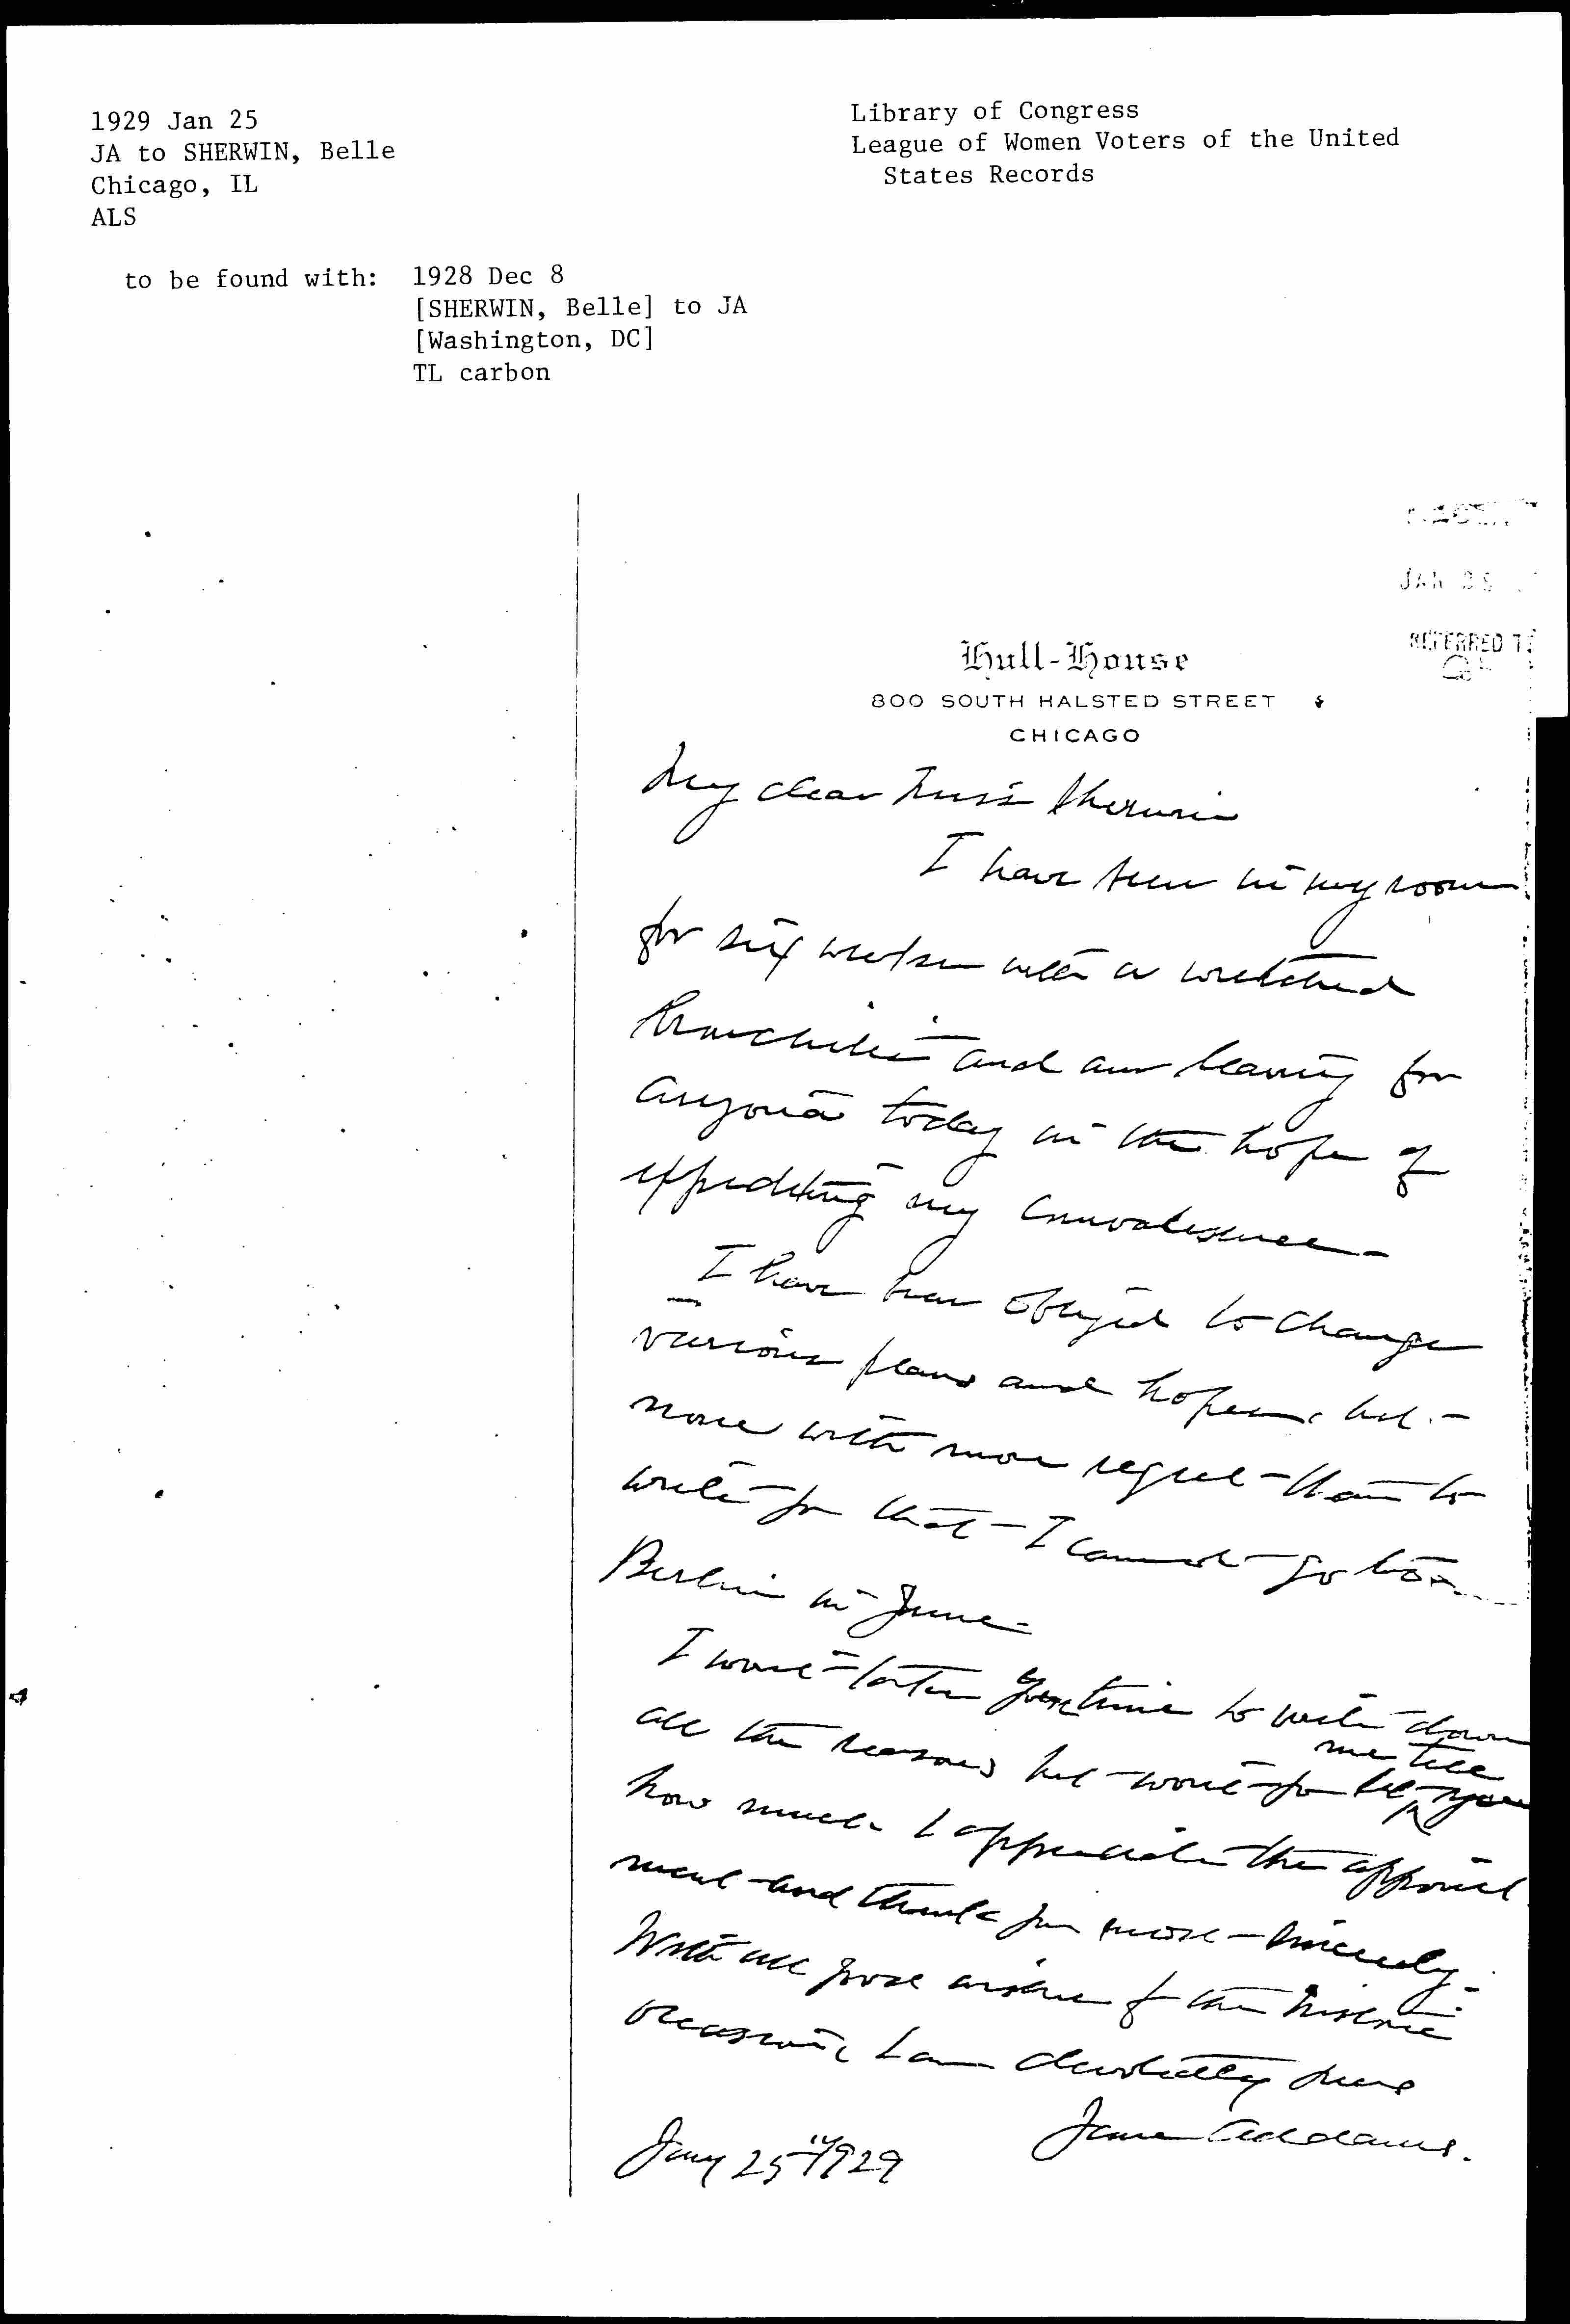 1929 Jan 25
JA to SHERWIN, Belle
Chicago, IL
ALS
Library of Congress
League of Women Voters of the United
States Records
to be found with: 1928 Dec 8
[SHERWIN, Belle] to JA
[Washington, DC]
TL carbon
JAN
REFERRED TO
Hull-House
800 SOUTH HALSTED STREET
CHICAGO
My dear Miss Sherwin
I have been in my room
for six weeks with a wretched
bronchitis and am leaving for
Arizona today in the hope of
expediting my convalescence –
I have been obliged to change
various plans and hopes, but –
none with more regret than to
write you that I cannot go to
Berlin in June –
I won't take your time to write down
all the reasons but won't you let me tell you
how much I appreciate the appoint
ment and thank you most sincerely –
With all good wishes for the historic
occasion, I am devotedly yours
Jane Addams.
Jany 25" 1929